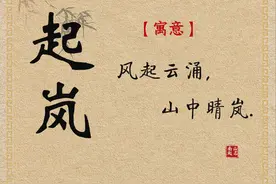 起岚
【寓意】
风起云涌，
山中晴岚.